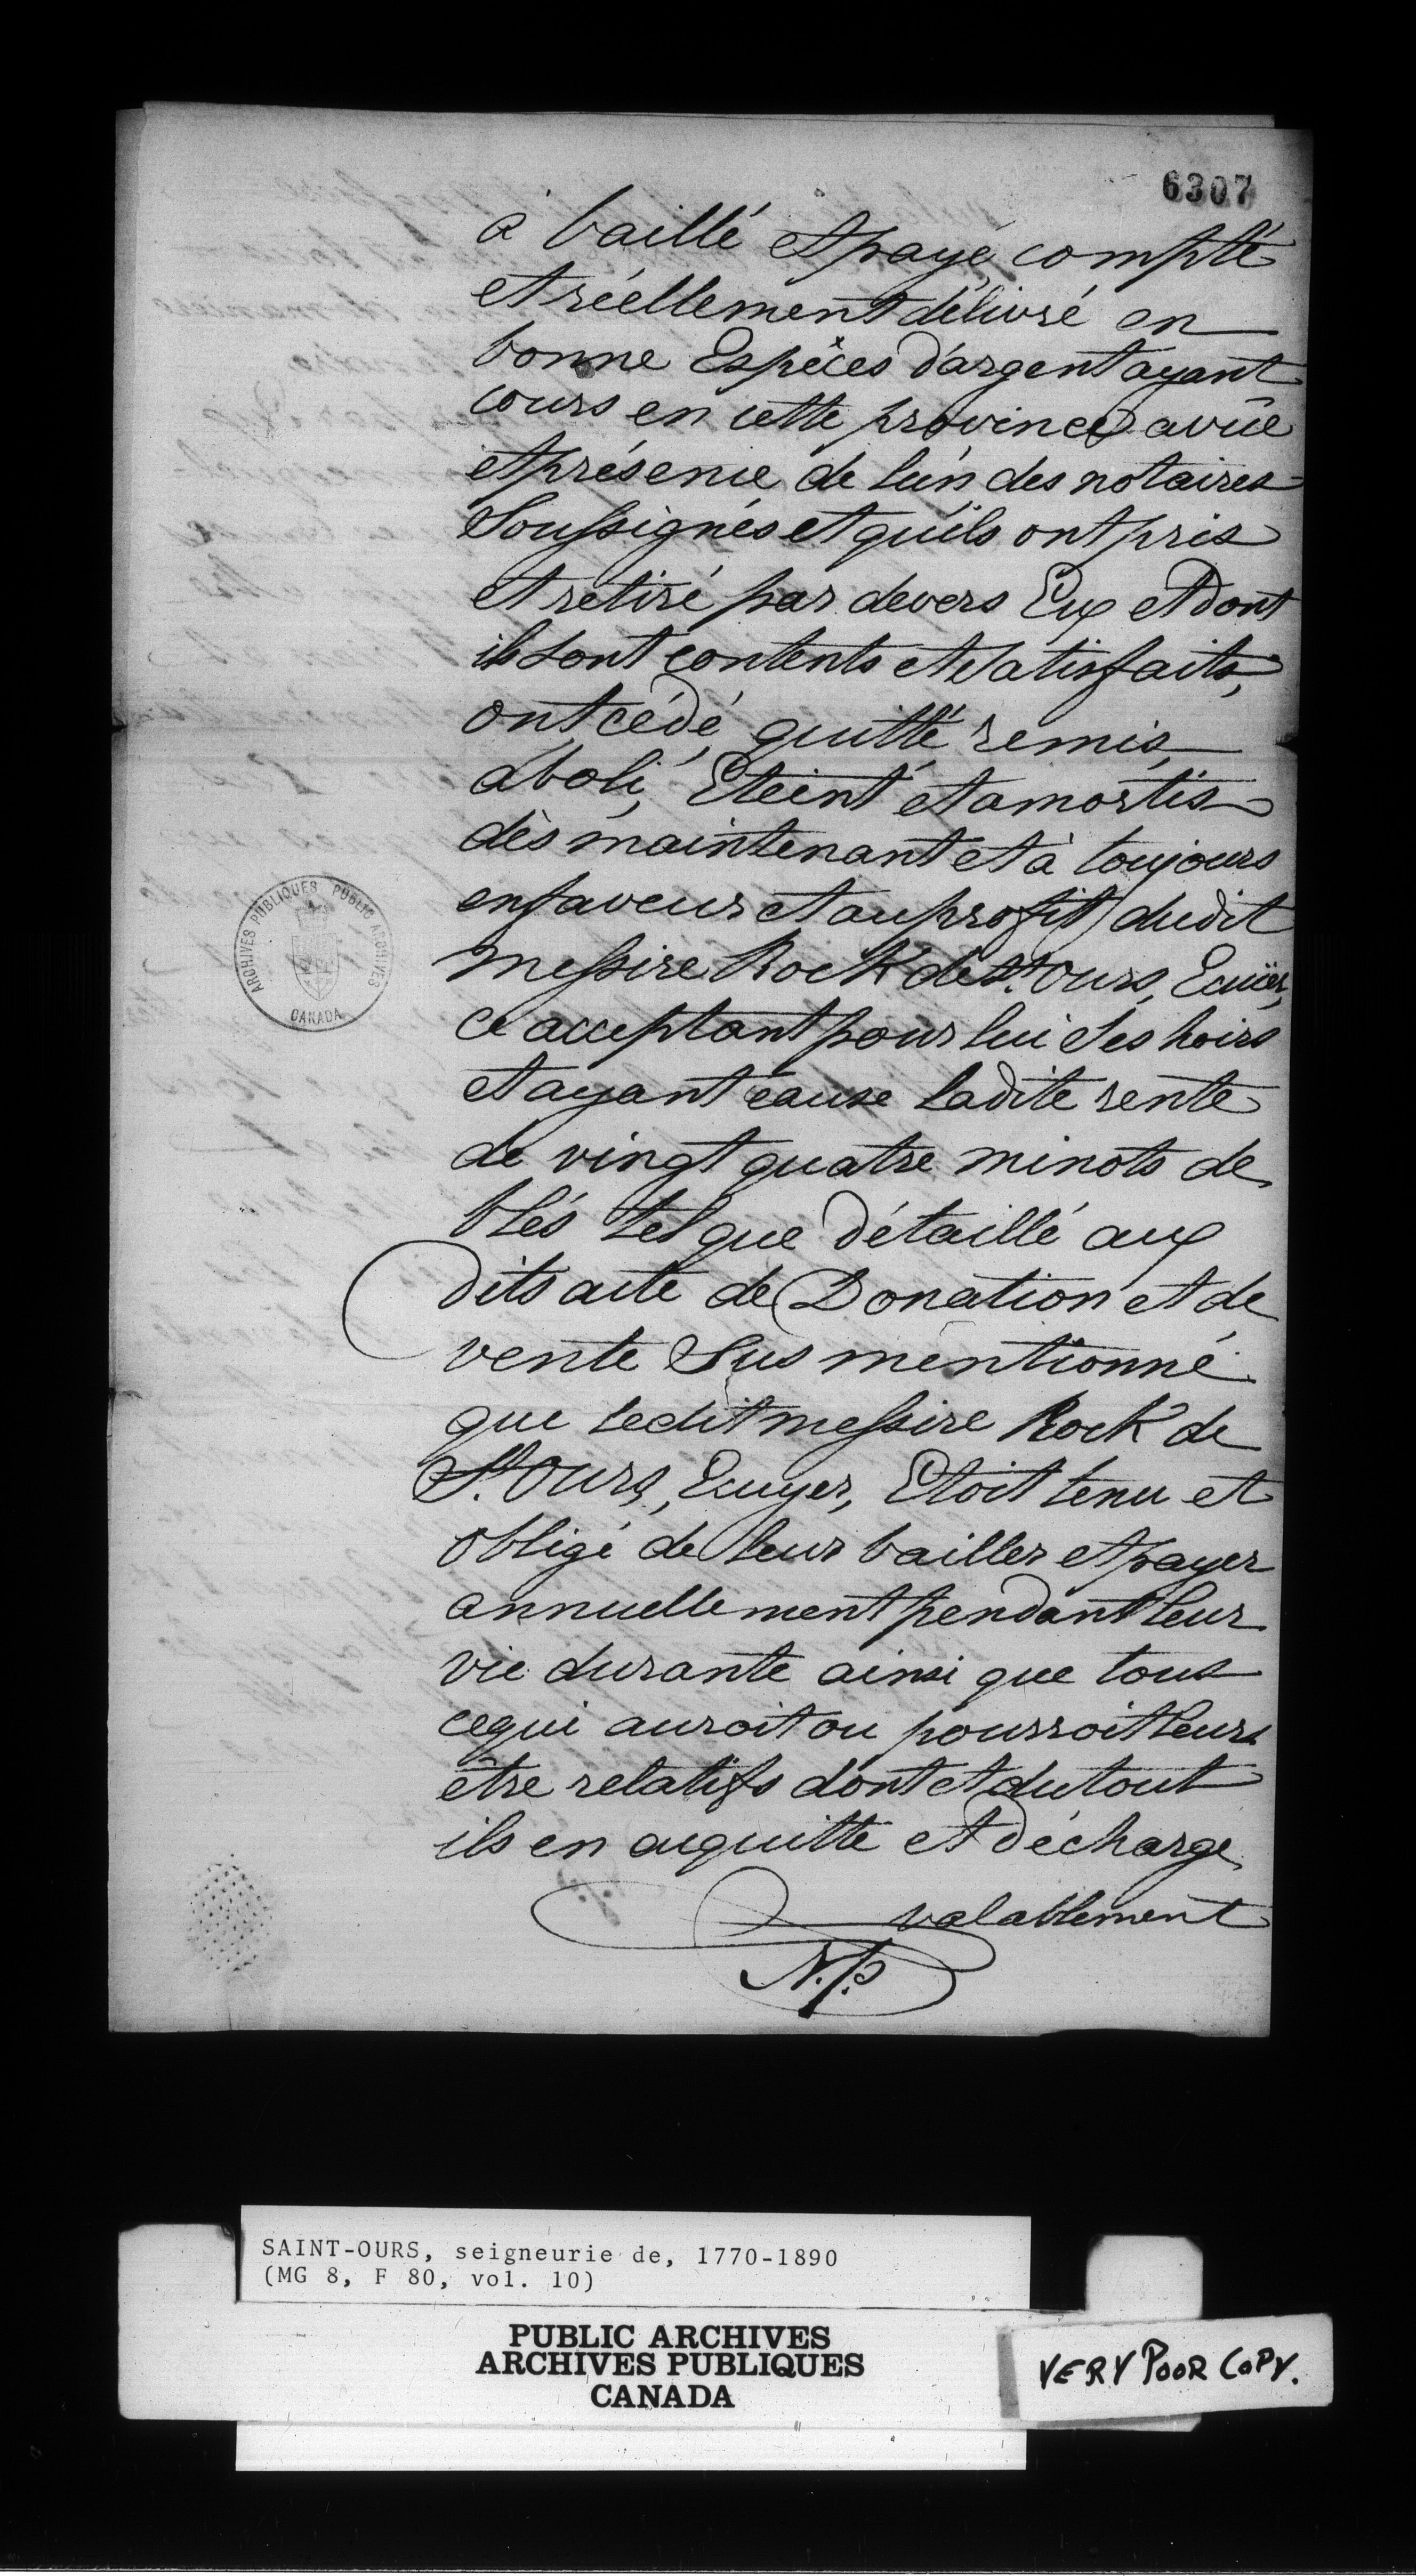 6307
a baillé et payé, compté
et réellement délivré en
bonne Espèces d'argent ayant
cours en cette province a vüe
et présence de l'un des notaires
Soussignés et qu'ils ont pris
et retiré par devers Eux et dont
ils sont contents et satisfaits,
ont cédé, quitté, remis,
aboli, Eteint et amortis
dès maintenant et à toujours
en faveur et au profit dudit
Messire Rock de St. Ours, Ecuïer,
ce acceptant pour lui ses hoirs
et ayant cause ladite rente
de vingt quatre minots de
blés tel que détaillé aux
dits acte de Donation et de
vente Sus mentionné
que ledit messire Rock de
St. Ours, Ecuyer, Etoit tenu et
obligé de leur bailler et payer
annuellement pendant leur
vie durante ainsi que tous
ce qui auroit ou pourroit leurs
être relatifs dont et du tout
ils en acquitte et décharge
valablement
N.P.
ARCHIVES PUBLIQUES PUBLIC ARCHIVES
CANADA
SAINT-OURS, seigneurie de, 1770-1890
(MG 8, F 80, vol. 10)
PUBLIC ARCHIVES
ARCHIVES PUBLIQUES
CANADA
VERY POOR COPY.